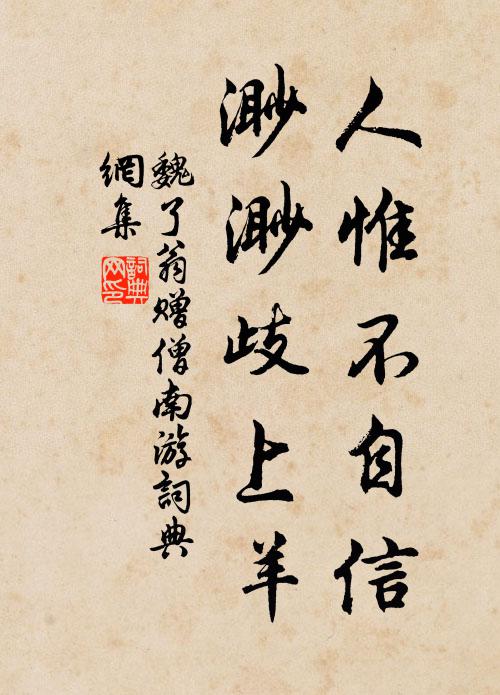 人惟不自信
渺渺歧上羊
魏了翁赠僧南游詞典
網集
詞典
网印